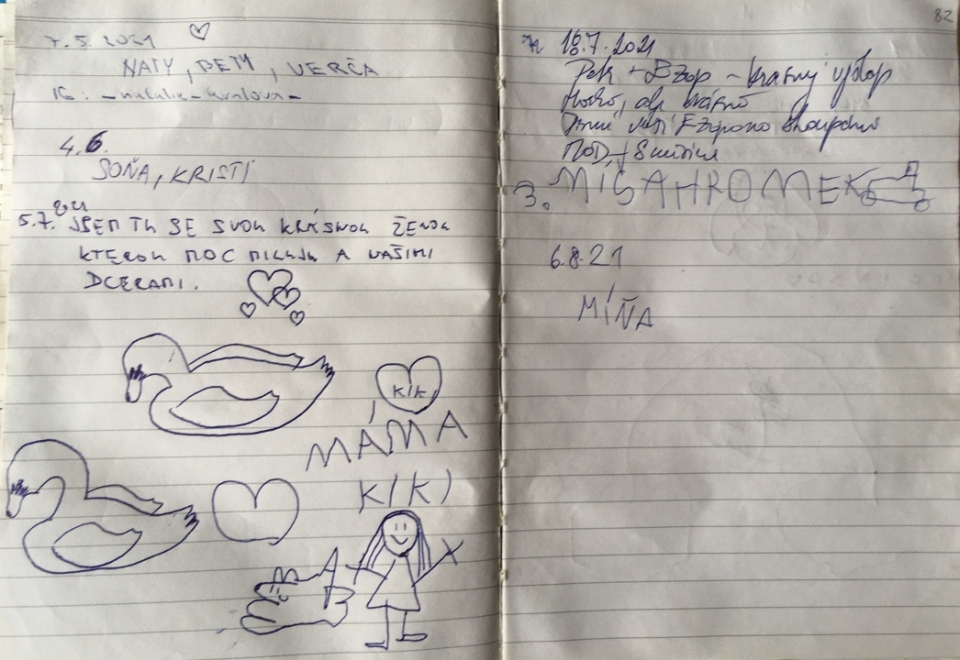 7.5.2021
NATY, PETY, VERČA
IG: -natalie-
4.6.
SOŇA, KRISTI
2021
5.7. JSEM TU SE SVOU KRÁSNOU ŽENOU
KTEROU MOC MILUJU A NAŠIMI
DCERAMI.
KIKI
MÁMA
KIKI
82
18.7.2021
Petr + - krásný výstup
Mokro, ale krásně
MOD +
3. MÍŠA HROMEK
6.8.21
MÍŇA